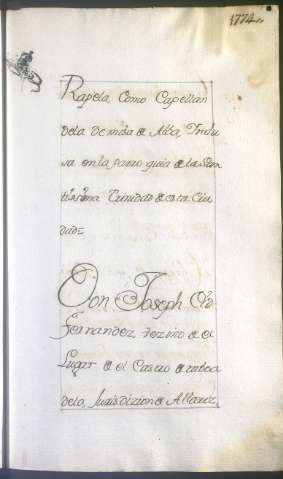 1774
Rapela Como Capellan
dela de misa de Alba, Inclu
sa en la parro quia de la San
tisima Trinidad de esta Ciu
dad=
Don Joseph
Fernandez, vezino de el
Lugar de el Casero de
delo, Jurisdizion de Allariz,